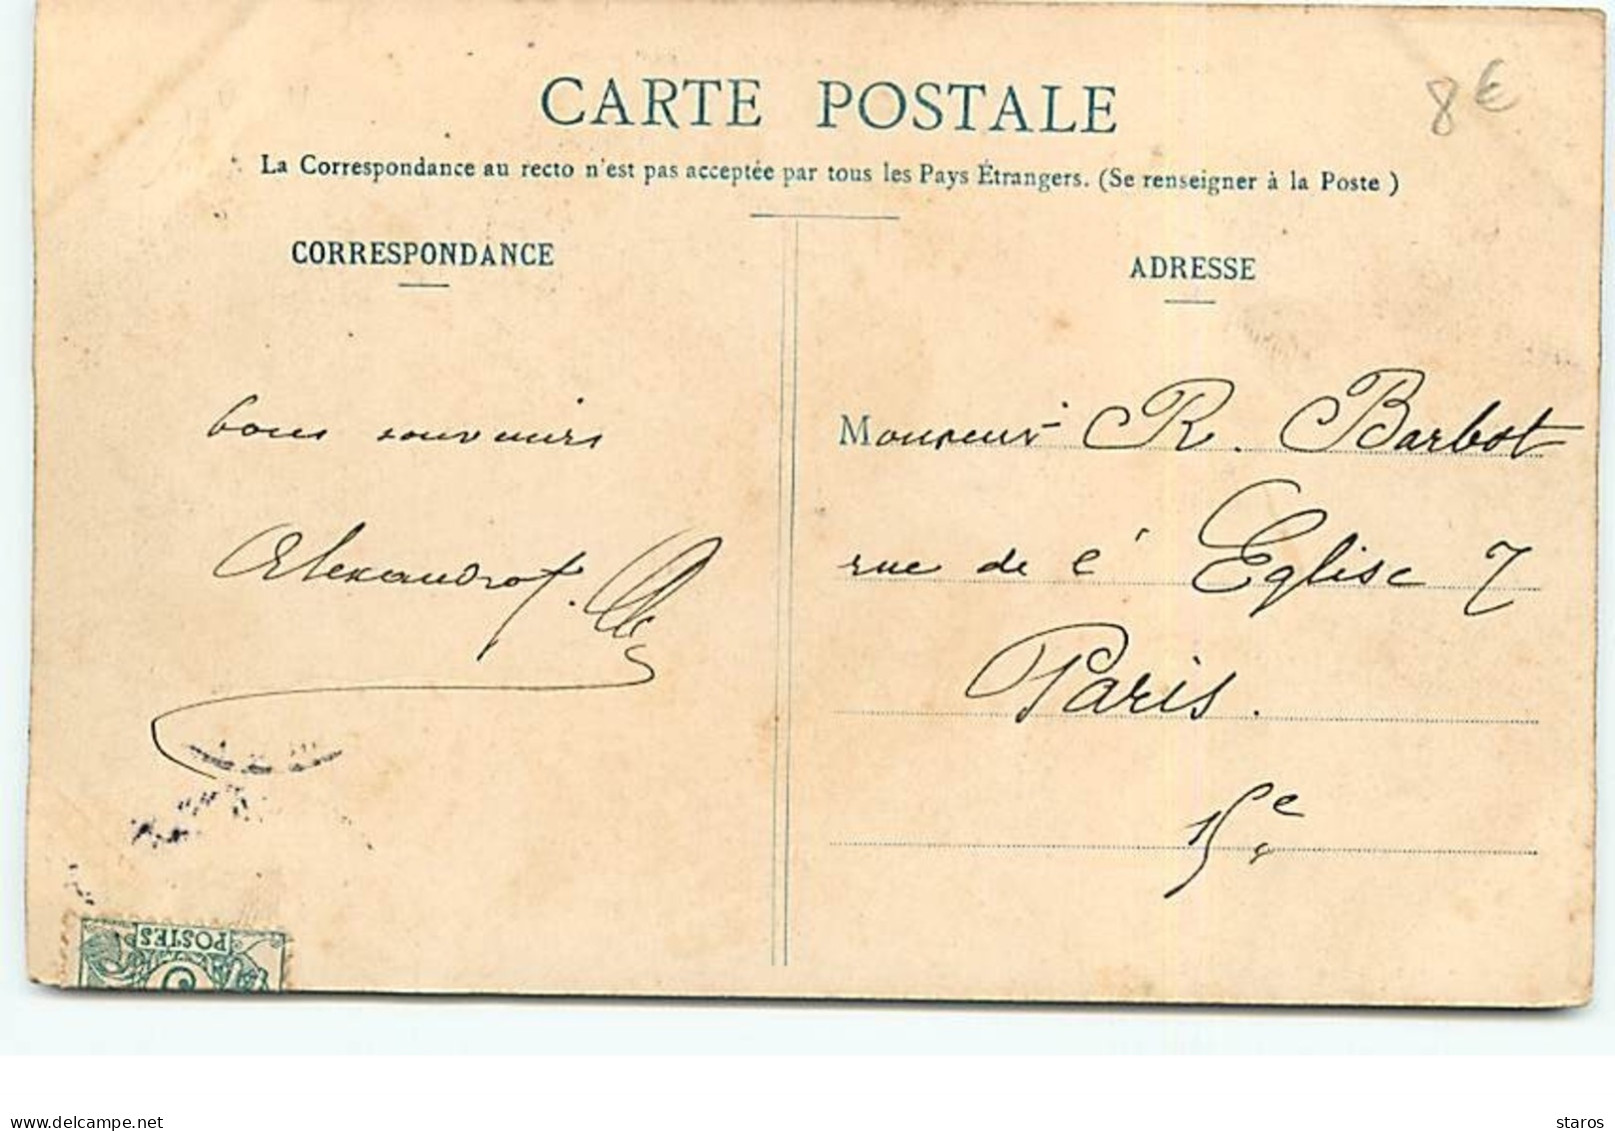 CARTE POSTALE
8€
La Correspondance au recto n'est pas acceptée par tous les Pays Étrangers. (Se renseigner à la Poste )
CORRESPONDANCE
bons souvenirs
ADRESSE
Monsieur R. Barbot
rue de l' Eglise 7
Paris.
15e
POSTES
www.delcampe.net
staros